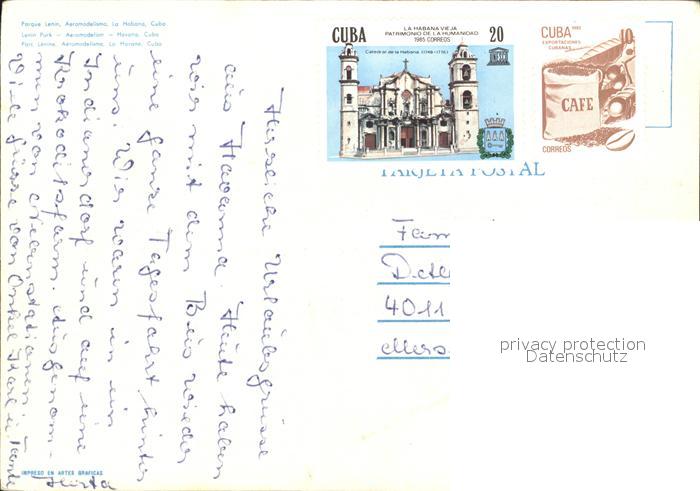 Parque Lenin, Aeromodelismo, La Habana, Cuba
Lenin Park - Aeromodelism - Havana, Cuba
Parc Lénine, Aeromodelisme, La Havane, Cuba
CUBA
LA HABANA VIEJA
PATRIMONIO DE LA HUMANIDAD
1985 CORREOS
20
Catedral de la Habana (1748-1776)
UNESCO
CUBA 1982
EXPORTACIONES CUBANAS
10
CAFE
CORREOS
TARJETA POSTAL
Herzliche Urlaubsgrüsse
aus Havanna. Heute haben
wir mit dem Bus wieder
eine ganze Tagesfahrt hinter
uns. Wir waren in ein
Indianerdorf und auf eine
Krokodilsfarm. Ausgenom-
men von Tierstationen.
Viele Grüsse von Onkel Karl u. Tante
Herta
Fam
Dete
4011
Mers
privacy protection
Datenschutz
IMPRESO EN ARTES GRAFICAS